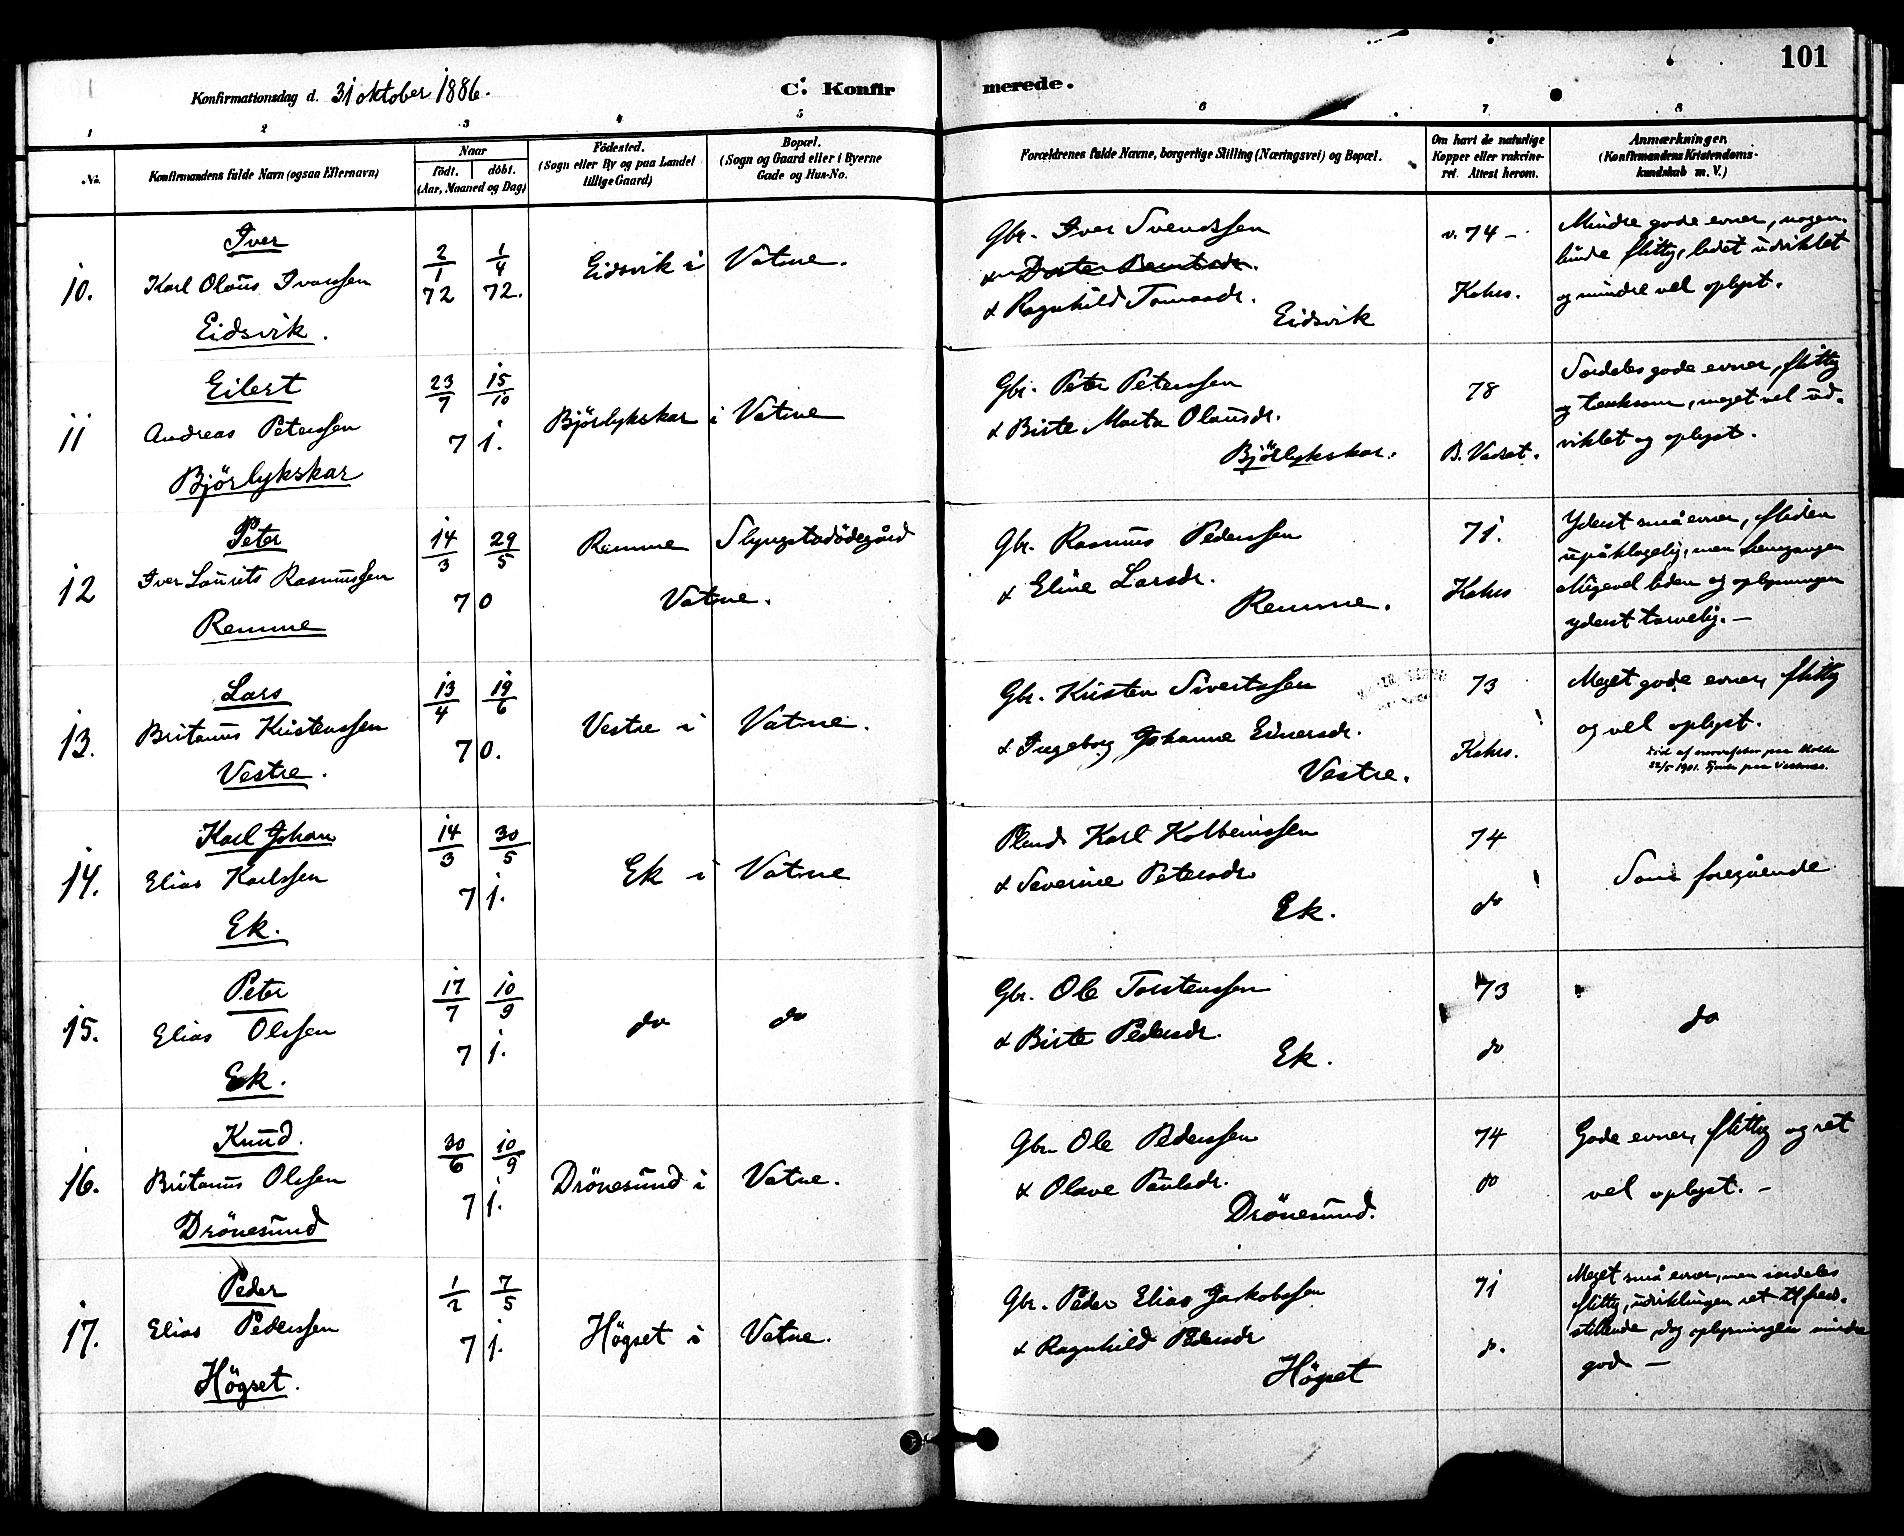 101
Konfirmationsdag d. 31 oktober 1886.
C. Konfir merede.
1 2 3 4 5 6 7 8
No.
Konfirmandens fulde Navn (ogsaa Efternavn)
Naar
födt. döbt.
(Aar, Maaned og Dag)
Födested.
(Sogn eller By og paa Landet
tillige Gaard)
Bopæl.
(Sogn og Gaard eller i Byerne
Gade og Hus-No.
Forældrenes fulde Navne, borgerlige Stilling (Næringsvei) og Bopæl.
Om havt de naturlige
Kopper eller vakcine-
ret. Attest herom.
Anmærkninger.
(Konfirmandens Kristendoms-
kundskab m. V.)
10.
Iver
Karl Olaus Iverssen
Eidsvik.
2/1 72
1/4 72.
Eidsvik i Vatne.
Gbr. Iver Svendssen
& Ragnhild Tomasdr.
Eidsvik
v. 74 -
Kahrs.
Mindre gode evner, nogen-
lunde flittig, lidet udviklet
og mindre vel oplyst.
11
Eilert
Andreas Peterssen
Björlykskar
23/7 15/10
71.
Björlykskar i Vatne
Gbr. Peter Peterssen
& Birte Marta Olausdr.
Björlykskar.
78
B. Vadset.
Særdeles gode evner, flittig
og tænksom, meget vel ud-
viklet og oplyst.
12
Peter
Iver Laurits Rasmussen
Remme
14/3 29/5
70
Remme Slyngstadödegård
Vatne.
Gbr. Rasmus Pederssen
& Eline Larsdr.
Remme.
71.
Kahrs
Yderst små evner, fliden
upåklagelig, men fremgangen
alligevel liden og oplysningen
yderst tarvelig. -
13.
Lars
Britanus Kristenssen
Vestre.
13/4 19/6
70.
Vestre i Vatne.
Gbr. Kristen Sivertssen
& Ingeborg Johanne Einersdr.
Vestre.
73
Kahrs.
Meget gode evner, flittig
og vel oplyst.
22/5 1901.
14.
Karl Johan
Elias Karlssen
Ek.
14/3 30/5
71.
Ek i Vatne
Karl Kolbeinssen
& Severine Petersdr.
Ek.
74
do
Som foregående
15.
Peter
Elias Olssen
Ek.
17/7 10/9
71.
do do
Gbr. Ole Torstenssen
& Birte Pedersdr.
Ek.
73
do
do
16.
Knud.
Britanus Olssen
Drönesund
30/6 10/9
71.
Drönesund i Vatne.
Gbr. Ole Pederssen
& Olave Paulsdr.
Drönesund.
74
do
Gode evner, flittig og ret
vel oplyst. -
17.
Peder
Elias Pederssen
Högset.
1/2 7/5
71.
Högset i Vatne.
Gbr. Peder Elias Jakobssen
& Ragnhild Pedersdr
Högset
71
do.
Meget små evner, men særdeles
flittig, udviklingen ret tilfreds-
stillende, dog oplysningen mindre
god -